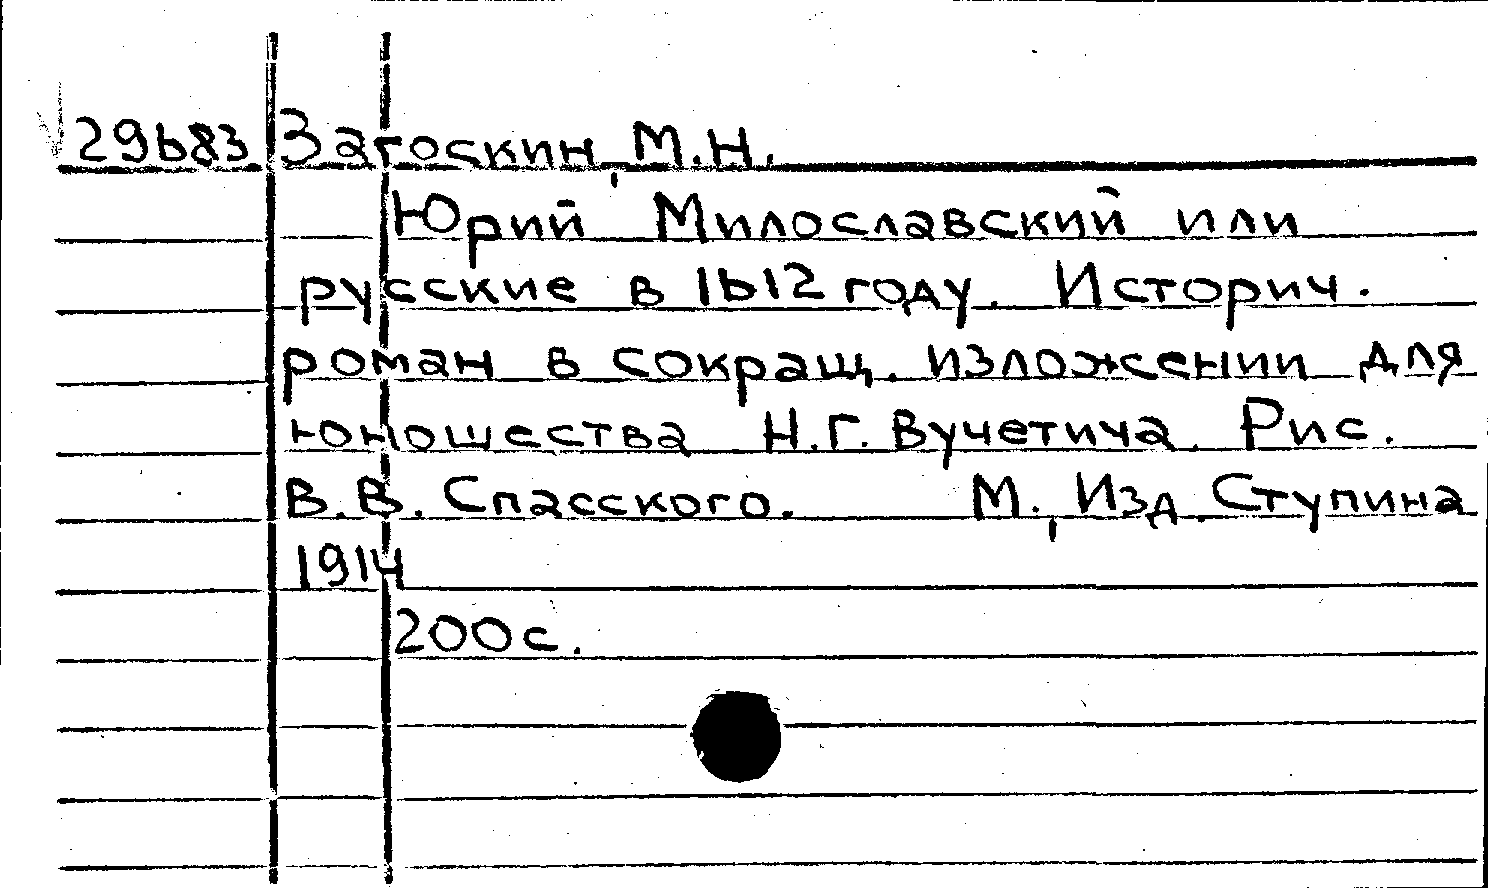 29683 Загоскин, М.Н.
Юрий Милославский или
русские в 1612 году. Историч.
роман в сокращ. изложении для
юношества Н.Г. Вучетича. Рис.
В.В. Спасского. М., Изд. Ступина
1914
200с.